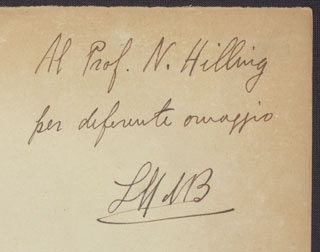 Al Prof. N. Hilling
per deferente omaggio